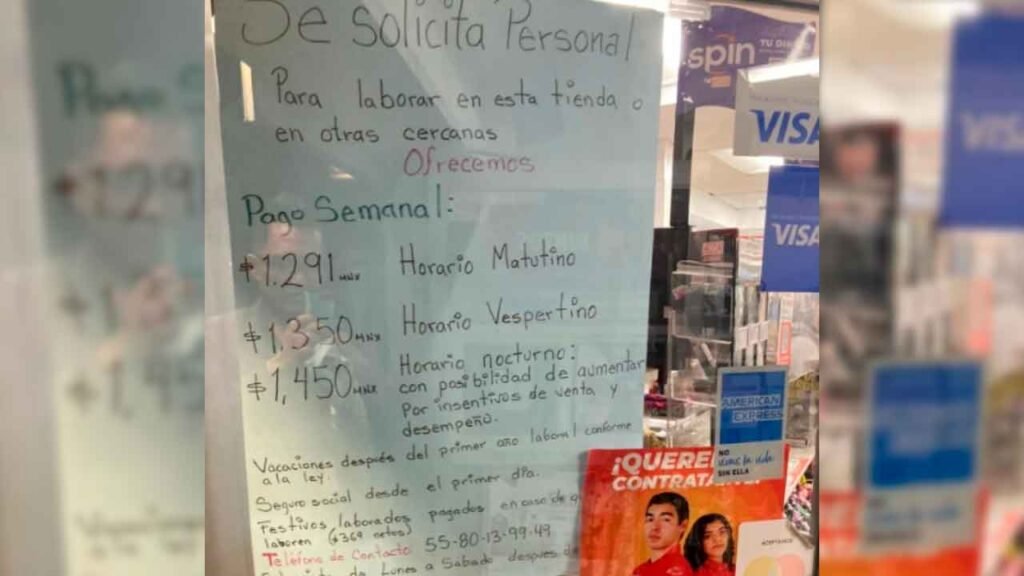 Se solicita Personal
Para laborar en esta tienda o
en otras cercanas
Ofrecemos
Pago Semanal:
$1.291 MNX Horario Matutino
$1,350 MNX Horario Vespertino
$1,450 MNX Horario nocturno:
con posibilidad de aumentar
por insentivos de venta y
desempeño.
Vacaciones después del primer año laboral conforme
a la ley.
Seguro social desde el primer día.
Festivos laborados pagados en caso de q
laboren (
Teléfono de Contacto 55-80-13-99-49
de Lunes a Sábado después de
spin
TU
VISA
VISA
AMERICAN
EXPRESS
NO
vivas la vida
SIN ELLA
¡QUERE
CONTRATA